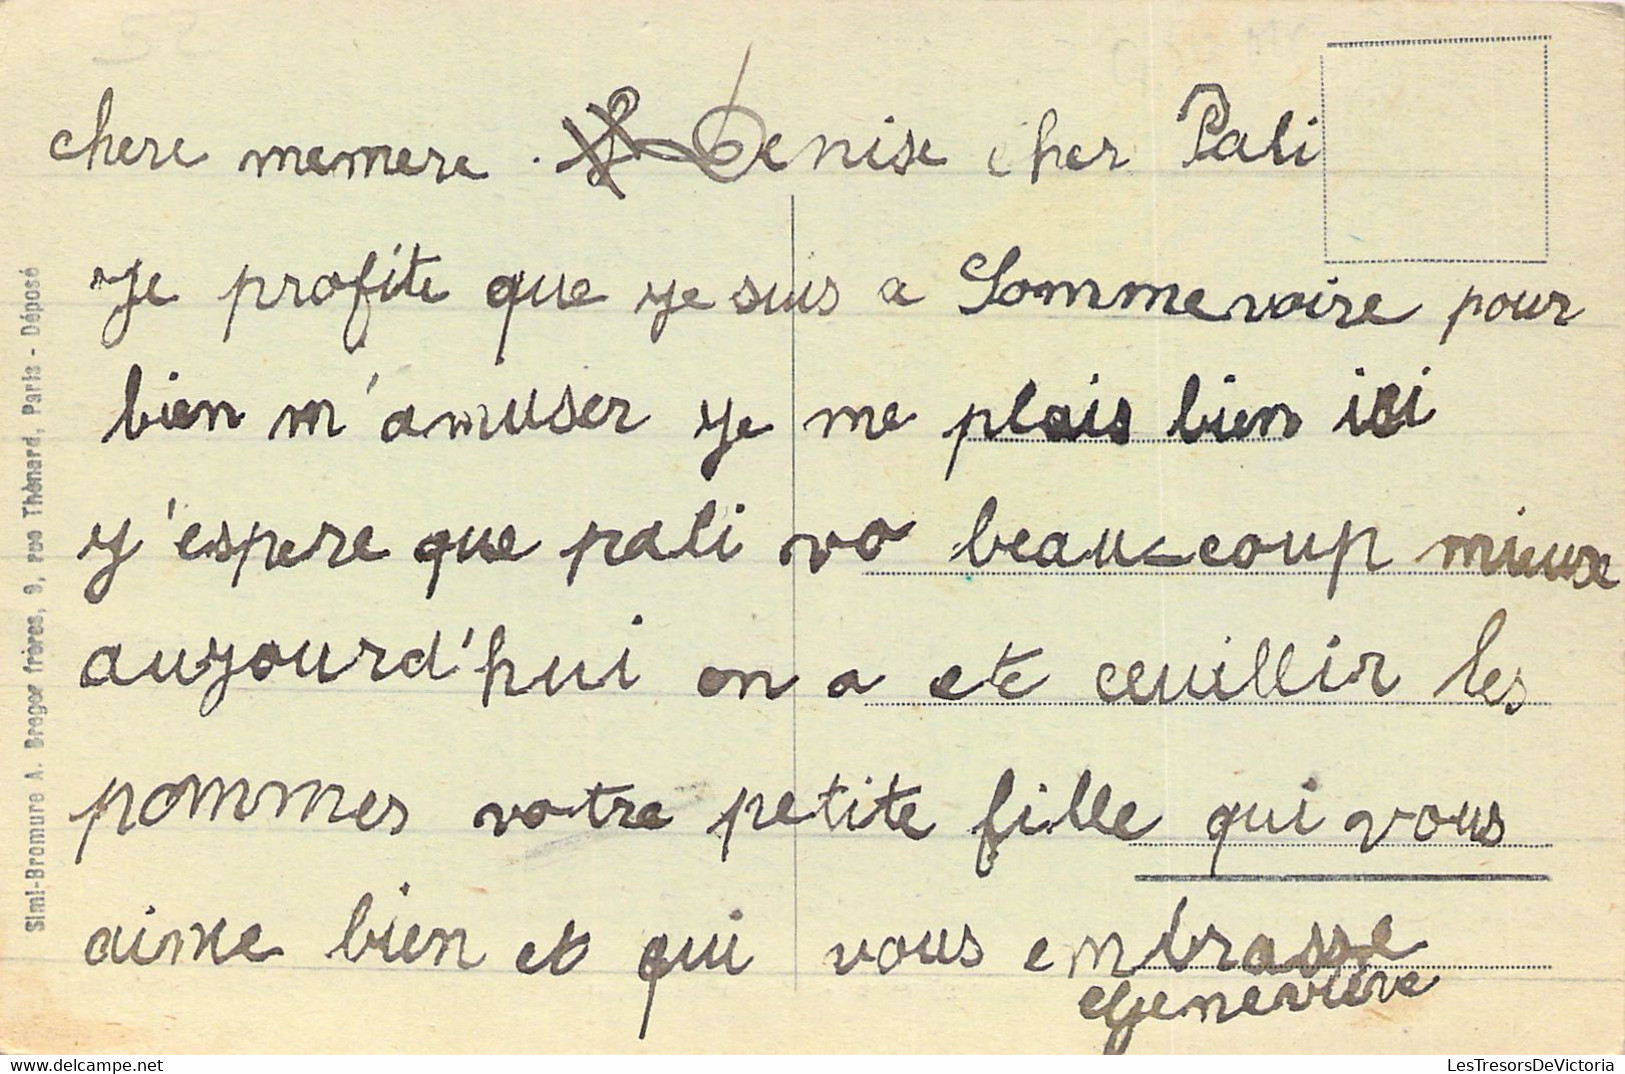 chere memere. Denise cher Pali
Je profite que je suis a Sommevoire pour
bien m'amuser je me plais bien ici
j'espere que pali va beaucoup mieux
aujourd'hui on a ete ceuillir les
pommes votre petite fille qui vous
aime bien et qui vous embrasse
Genevieve
Simi-Bromure A. Breger frères, 9, rue Thénard, Paris - Déposé
delcampe.net
LesTresorsDeVictoria